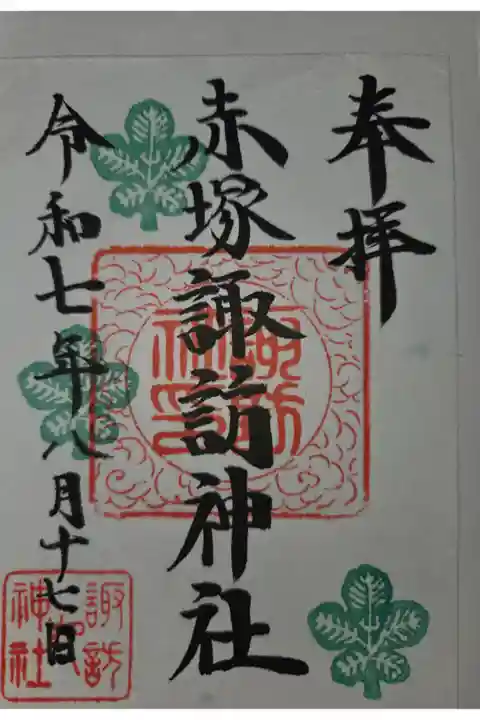 奉拝
赤塚諏訪神社
令和七年八月十七日
諏訪
神社